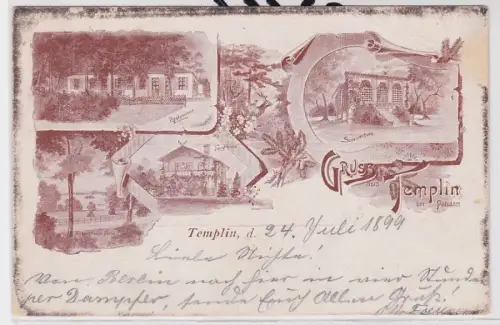 Restaurant
Forsthaus
Gruss
aus
Templin
bei Potsdam
Templin, d. 24. Juli 1899
Liebe Nichte!
Von Berlin nach hier in vier Stunden
per Dampfer, sende Euch Allen Gruß!